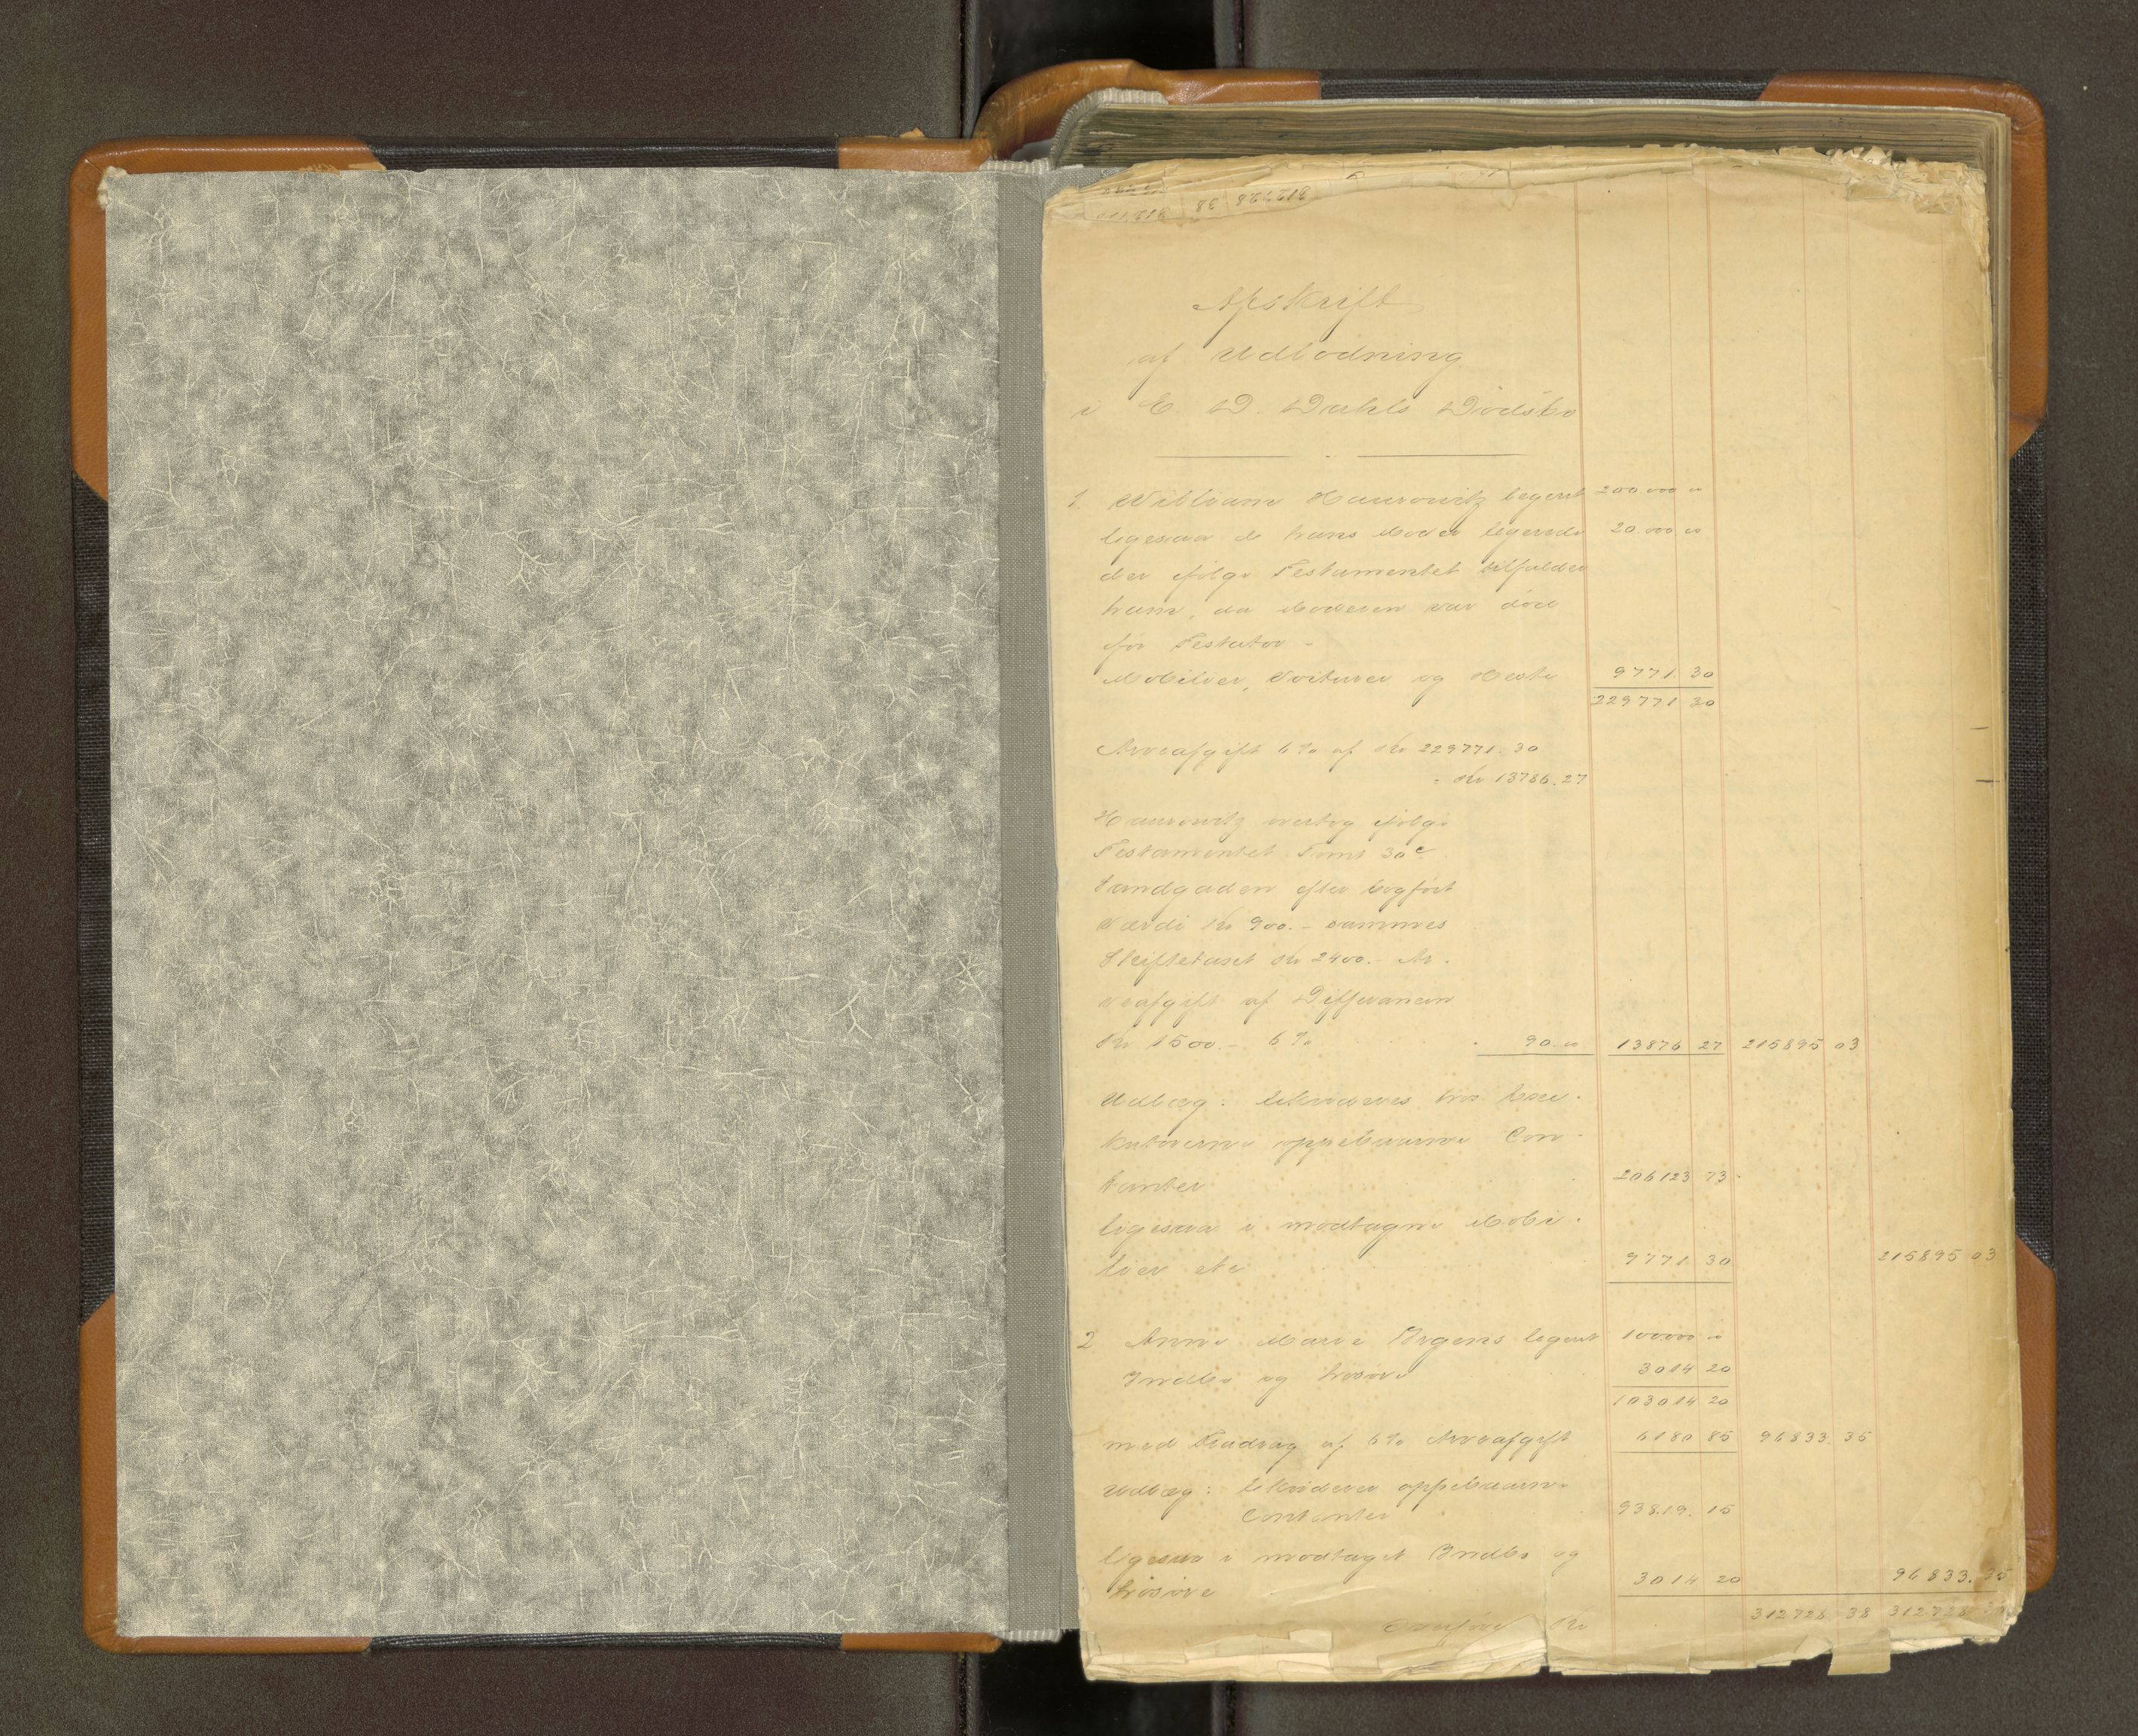 Afskrift
af Udlodning
i C. D. Dahls Dødsbo
1. William Haurowitz legeret 200.000 00
ligesaa de hans Moder legerede 20.000 00
der ifølge Testamentet tilfalder
ham, da Moderen var død
før Testator -
Mobilier, Voiturer og Heste 9771 30
229771 30
Arveafgift 6 % af Kr 229771. 30
= Kr 13786. 27
Haurowitz overtog ifølge
Testamentet Tomt 30 c
Strandgaden efter bogført
Værdi Kr 900. -
Skiftetaxt Kr 2400. - Ar-
veafgift af Differancen
Kr 1500. - 6 % 90. 00 13876 27 215895 03
Udlæg: likvideres hos Exe-
kutorerne oppebaarne Con-
tanter 206123 73
ligesaa i modtagne Mobi-
lier etc 9771 30 215895 03
2 Anne Marie Irgens legeret 100000 00
Indbo og Løsøre 3014 20
103014 20
med Fradrag af 6 % Arveafgift 6180 85 96833. 35
Udlæg: likviderer oppebaarne
Contanter 93819. 15
ligesaa i modtaget Indbo og
Løsøre 3014 20 96833. 35
Overføres Kr 312728 38 312728 38